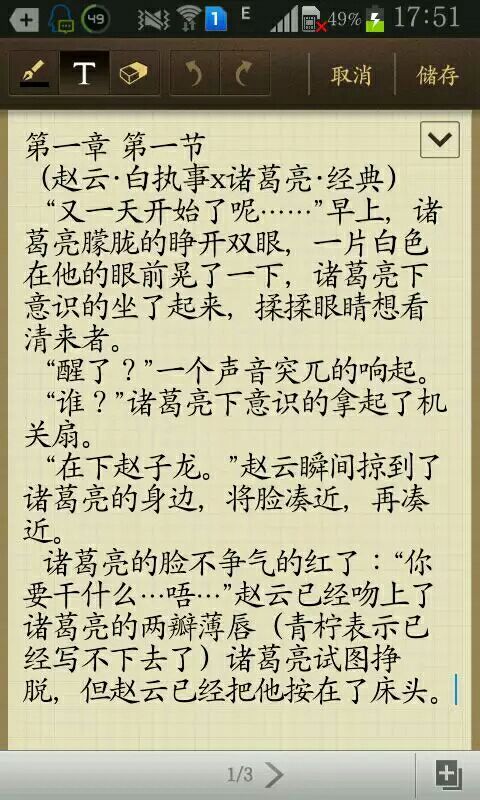 49 1 E 49% 17:51
T 取消 储存
第一章 第一节
（赵云·白执事x诸葛亮·经典）
“又一天开始了呢……”早上，诸
葛亮朦胧的睁开双眼，一片白色
在他的眼前晃了一下，诸葛亮下
意识的坐了起来，揉揉眼睛想看
清来者。
“醒了？”一个声音突兀的响起。
“谁？”诸葛亮下意识的拿起了机
关扇。
“在下赵子龙。”赵云瞬间掠到了
诸葛亮的身边，将脸凑近，再凑
近。
诸葛亮的脸不争气的红了：“你
要干什么…唔…”赵云已经吻上了
诸葛亮的两瓣薄唇（青柠表示已
经写不下去了）诸葛亮试图挣
脱，但赵云已经把他按在了床头。
1/3